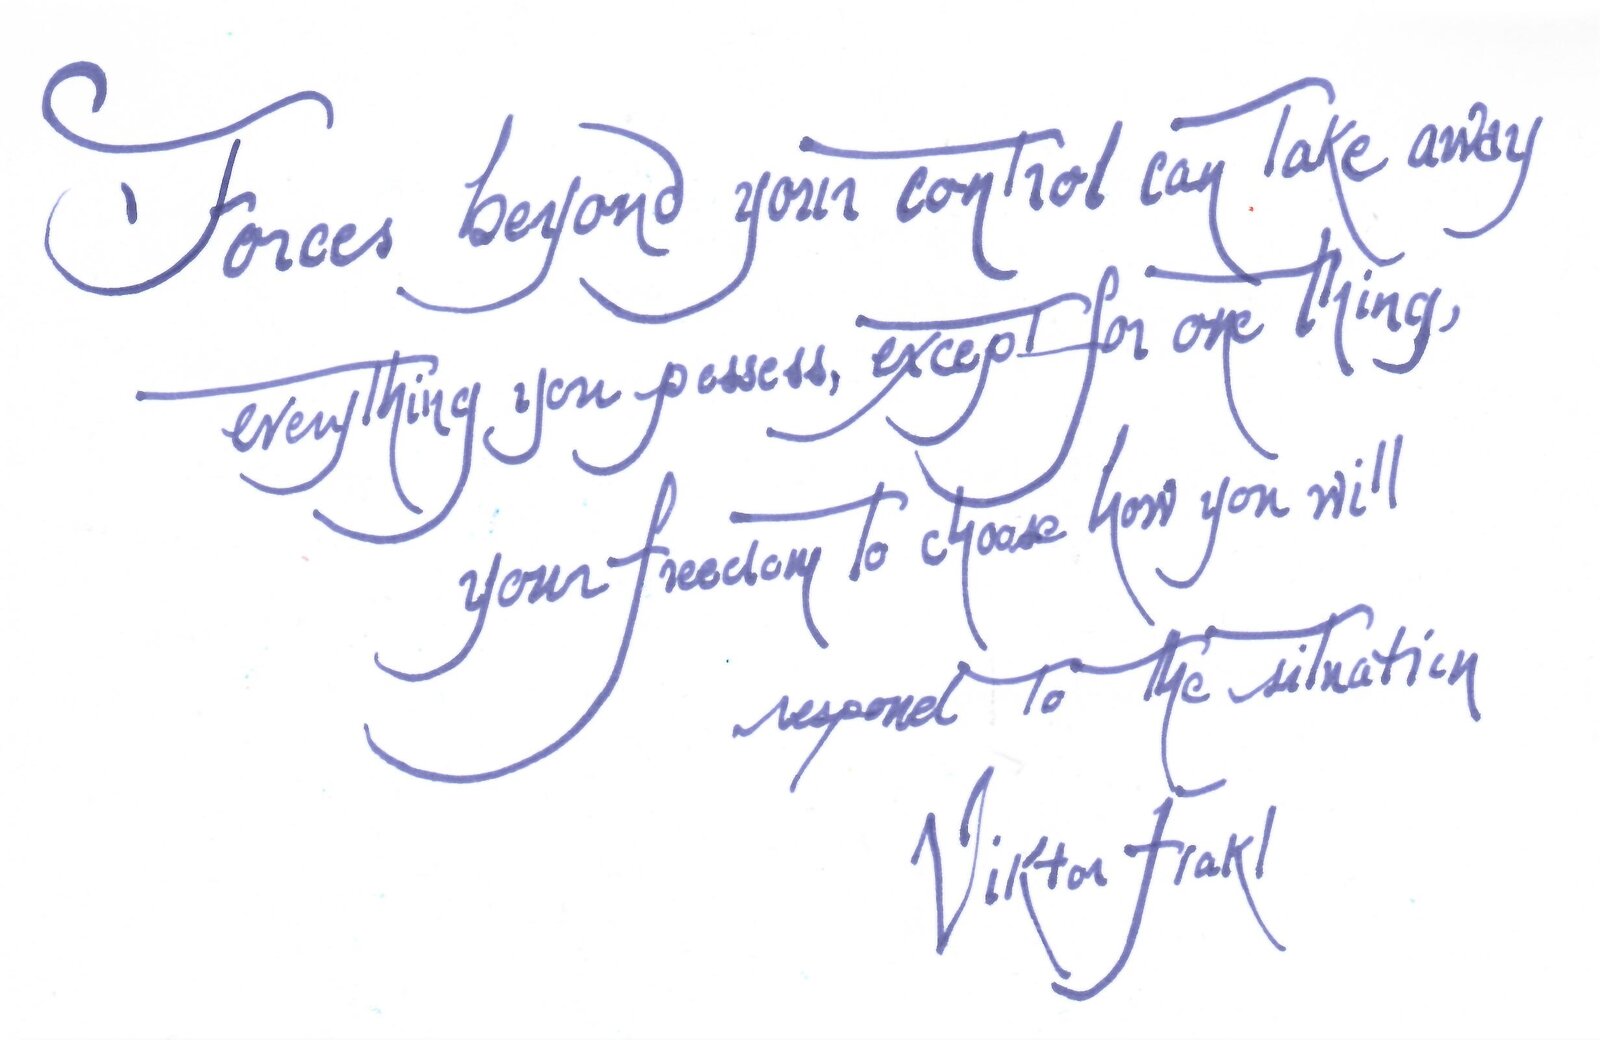 Forces beyond your control can take away
everything you possess, except for one thing,
your freedom to choose how you will
respond to the situation
Viktor Frakl